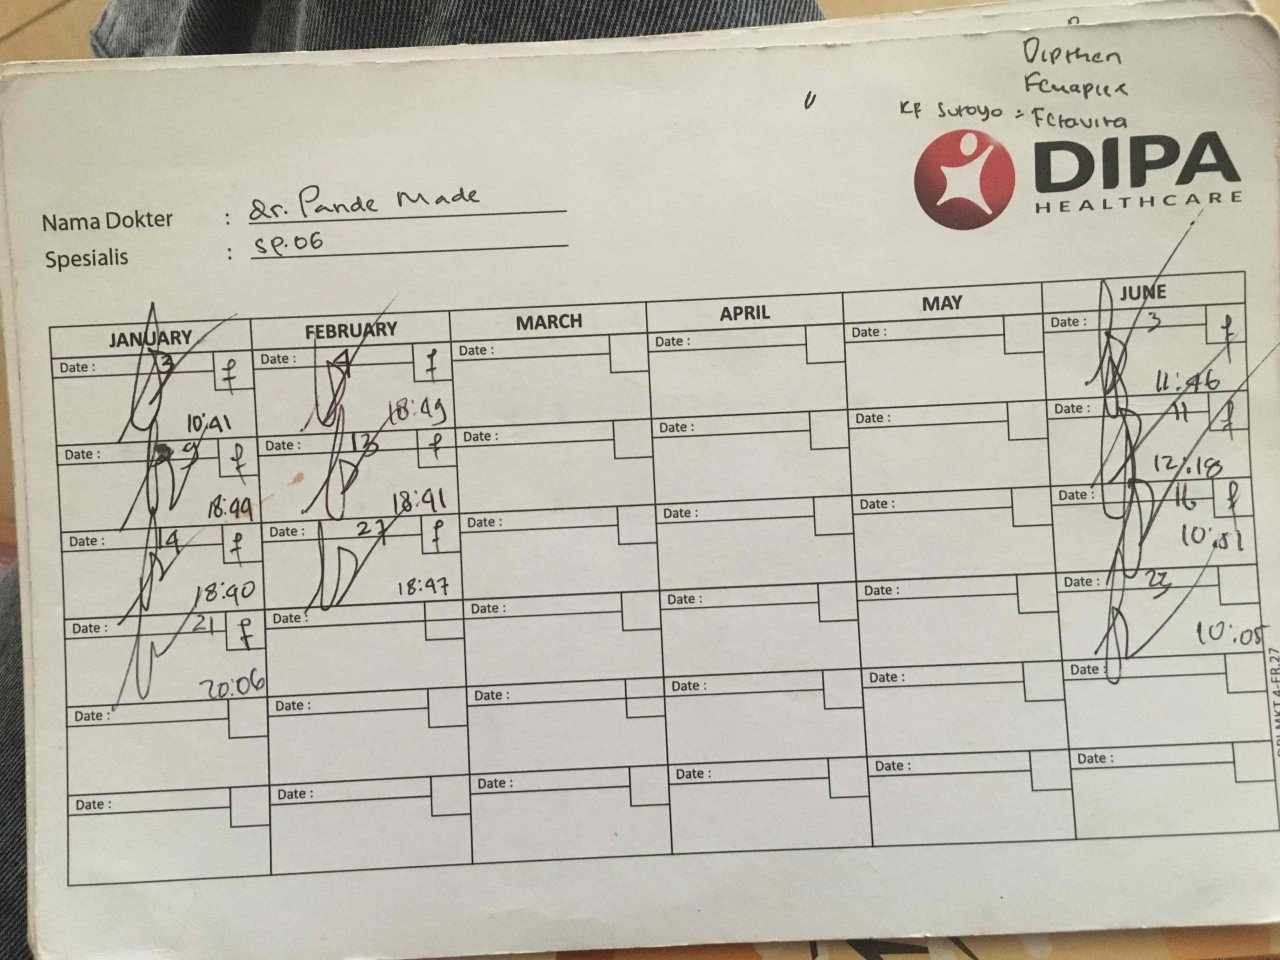 Dipthen
Fenapick
KF Suroyo = Fetavita
DIPA
HEALTHCARE
Nama Dokter : dr. Pande Made
Spesialis : SP.OG
JANUARY FEBRUARY MARCH APRIL MAY JUNE
Date : 3 f Date : 4 f Date : Date : Date : Date : 3 f
10:41 18:49 11:46
Date : 9 f Date : 13 f Date : Date : Date : Date : 11 f
18:44 18:41 12:18
Date : 14 f Date : 27 f Date : Date : Date : Date : 16 f
18:40 18:47 10:51
Date : 21 f Date : Date : Date : Date : Date : 23
20:06 10:05
Date : Date : Date : Date : Date : Date :
Date : Date : Date : Date : Date : Date :